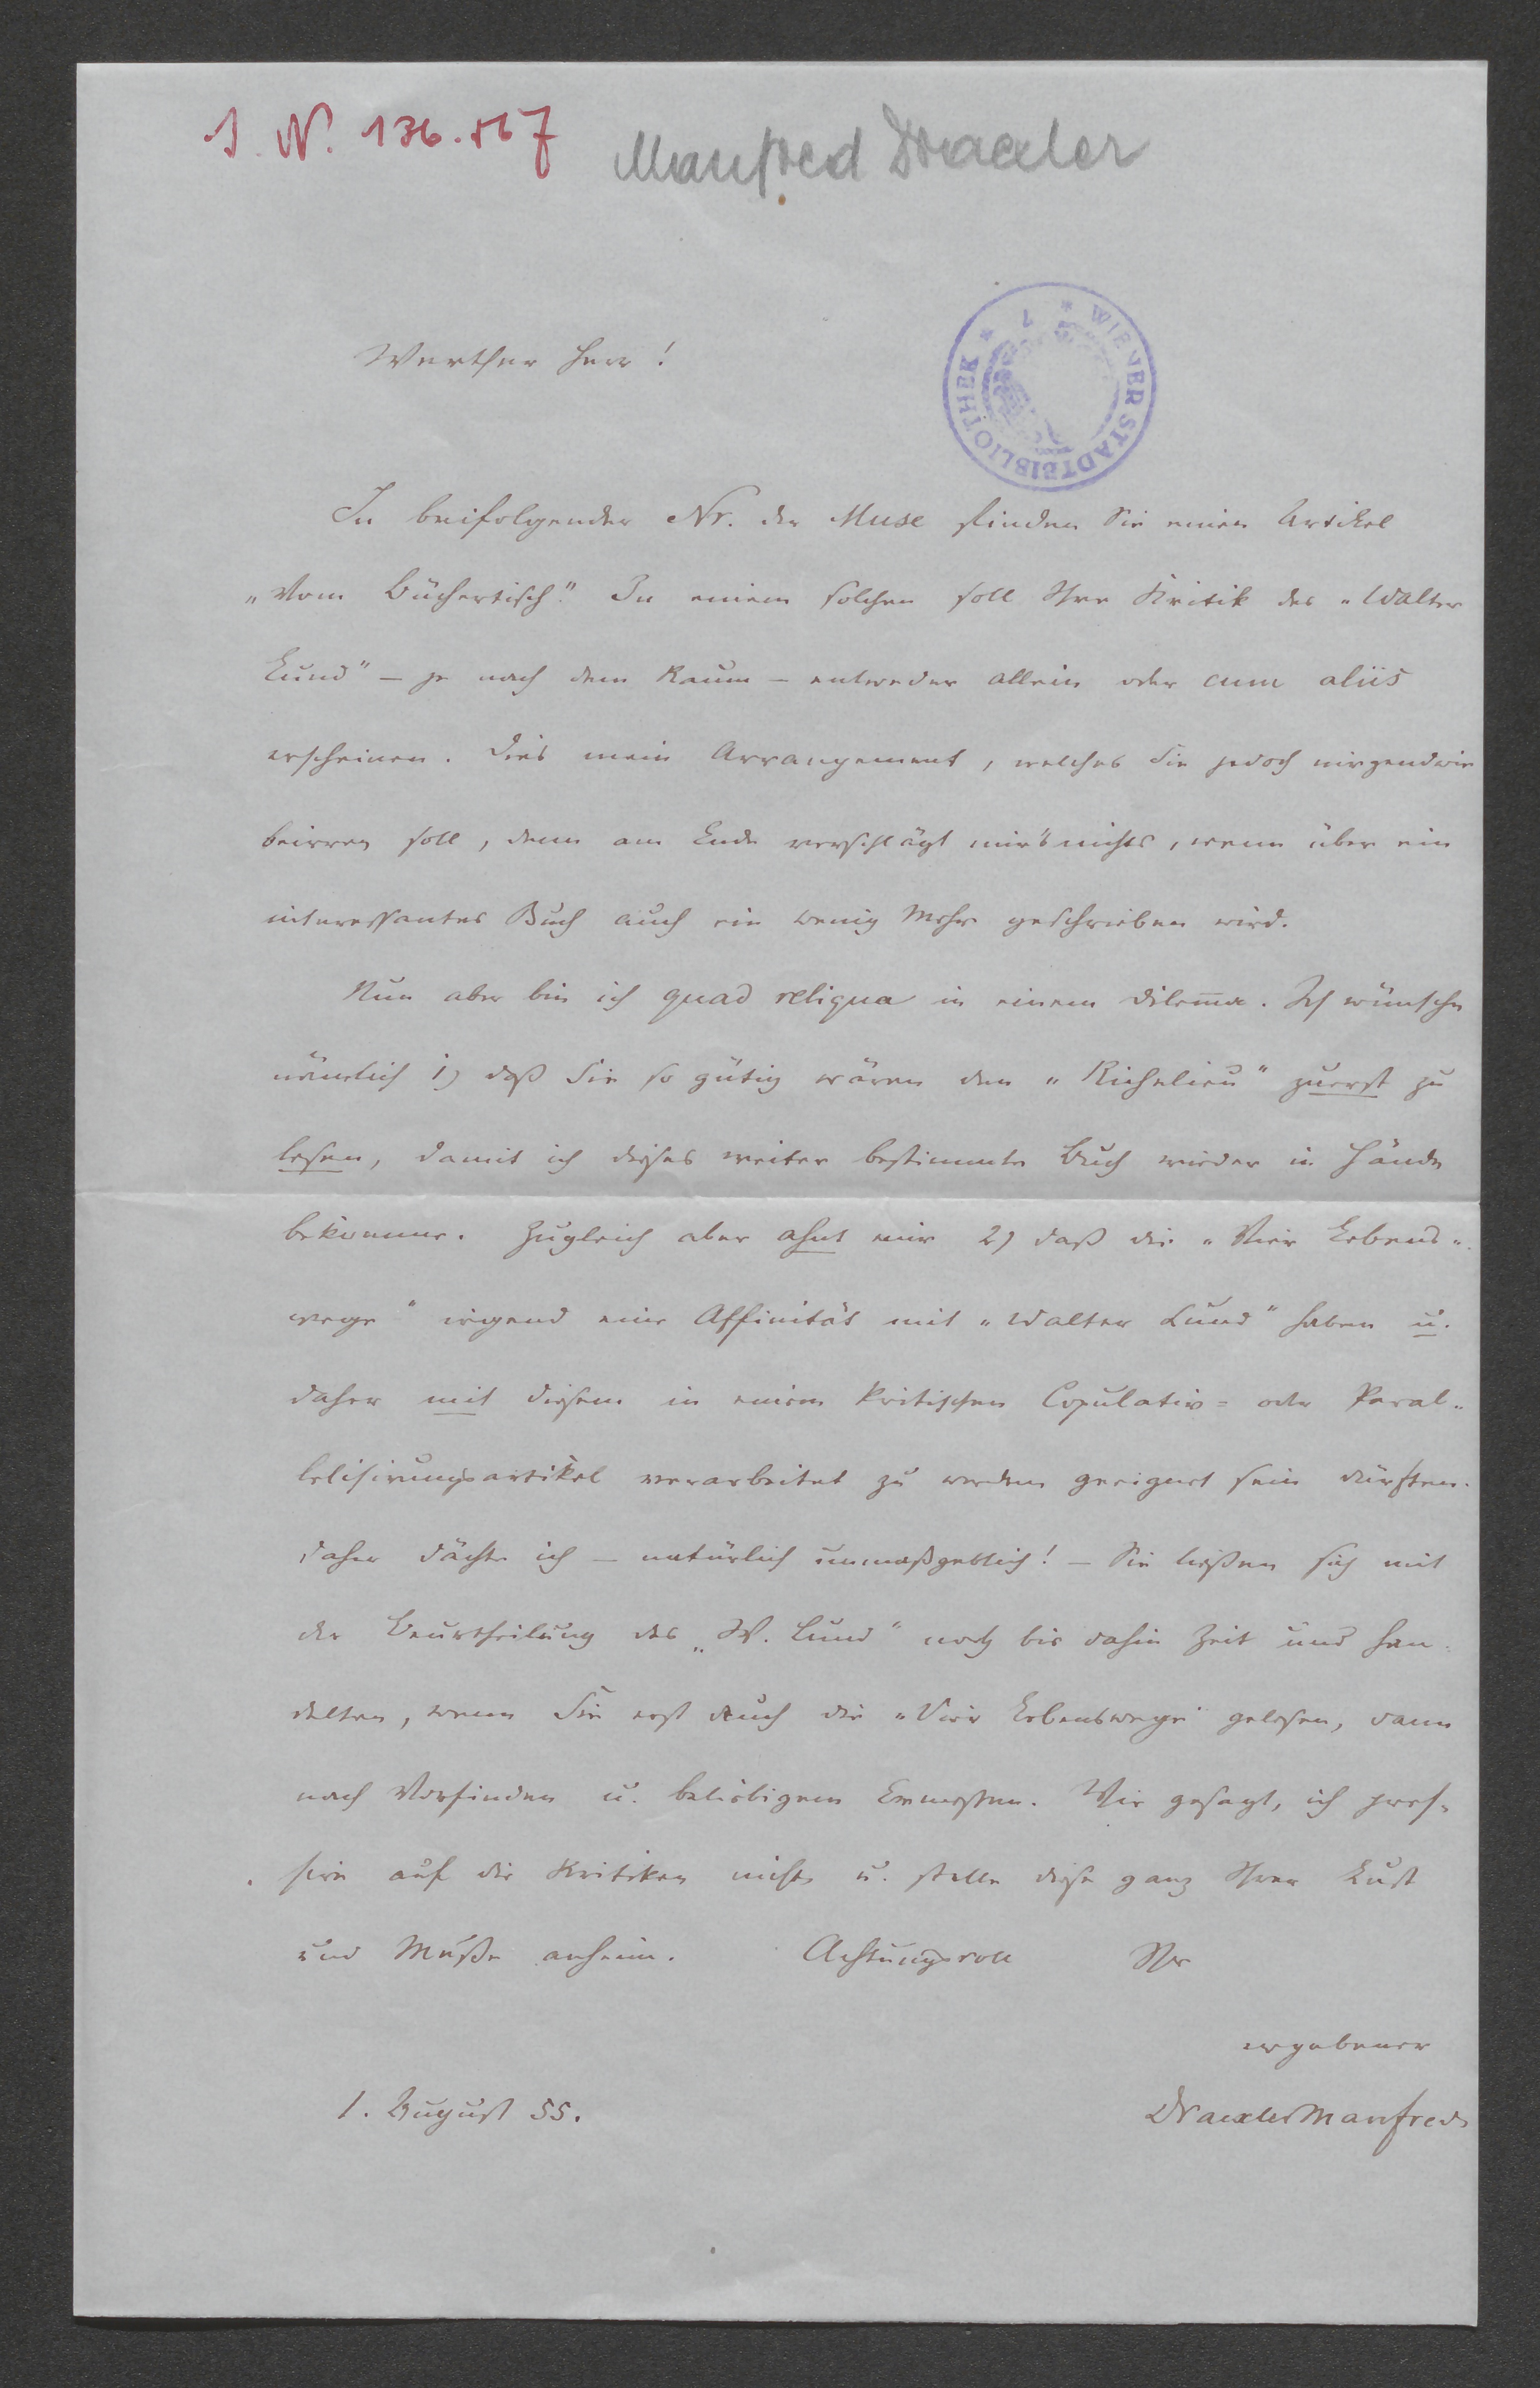 I. N. 136.567
Manfred Draexler
* WIENER STADTBIBLIOTHEK *
Werther Herr!
In beifolgender Nr. der Muse finden Sie einen Artikel
„Vom Büchertisch." In einem solchen soll Ihre Kritik des „Walter
Lund" – je nach dem Raum – entweder allein oder cum aliis
erscheinen. Dies mein Arrangement, welches Sie jedoch nirgendwie
beirren soll, denn am Ende verschlägt mir's nichts, wenn über ein
interessantes Buch auch ein wenig Mehr geschrieben wird.
Nun aber bin ich quad reliqua in einem Dilem̄a. Ich wünsche
nämlich 1) daß Sie so gütig wären den „Richelieu" zuerst zu
lesen, damit ich dieses weiter bestimmte Buch wieder in Hände
bekomme. Zugleich aber ahnt mir 2) daß die „Vier Lebens„
wege" irgend eine Affinität mit „Walter Lund" haben u.
daher mit diesem in einem kritischen Copulativ= oder Paral„
lelisirungsartikel verarbeitet zu werden geeignet sein dürften.
Daher dächte ich – natürlich unmaßgeblich! – Sie ließen sich mit
der Beurtheilung des „W. Lund" noch bis dahin Zeit und han„
delten, wenn Sie erst auch die „Vier Lebenswege" gelesen, dann
nach Vorfinden u. beliebigem Ermessen. Wie gesagt, ich pres„
sire auf die Kritiken nicht u. stelle diese ganz Ihrer Lust
und Muße anheim. Achtungsvoll Ihr
ergebener
1. August 55. DraexlerManfred